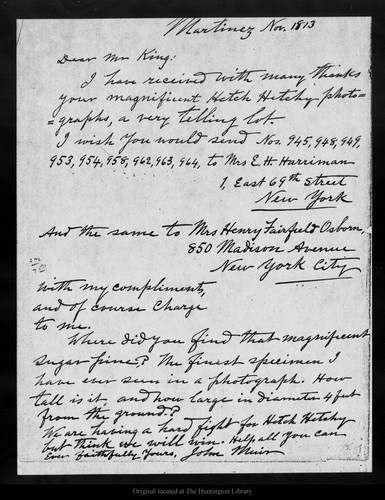 Martinez Nov. 1813
Dear Mr King:
I have received with many thanks
your magnificent Hetch Hetchy photo=
=graphs, a very telling lot.
I wish you would send Nos. 945, 948, 949,
953, 954, 958, 962, 963, 964, to Mrs E. H. Harriman
1, East 69th Street
New York
And the same to Mrs Henry Fairfield Osborn,
850 Madison Avenue
New York City
with my compliments,
and of course Charge
to me.
Where did you find that magnificent
sugar pine,? The finest specimen I
have ever seen in a photograph. How
tall is it, and how large in diameter 4 feet
from the ground?
We are having a hard fight for Hetch Hetchy
but think we will win. Help all you can
Ever faithfully Yours, John Muir
Original located at The Huntington Library